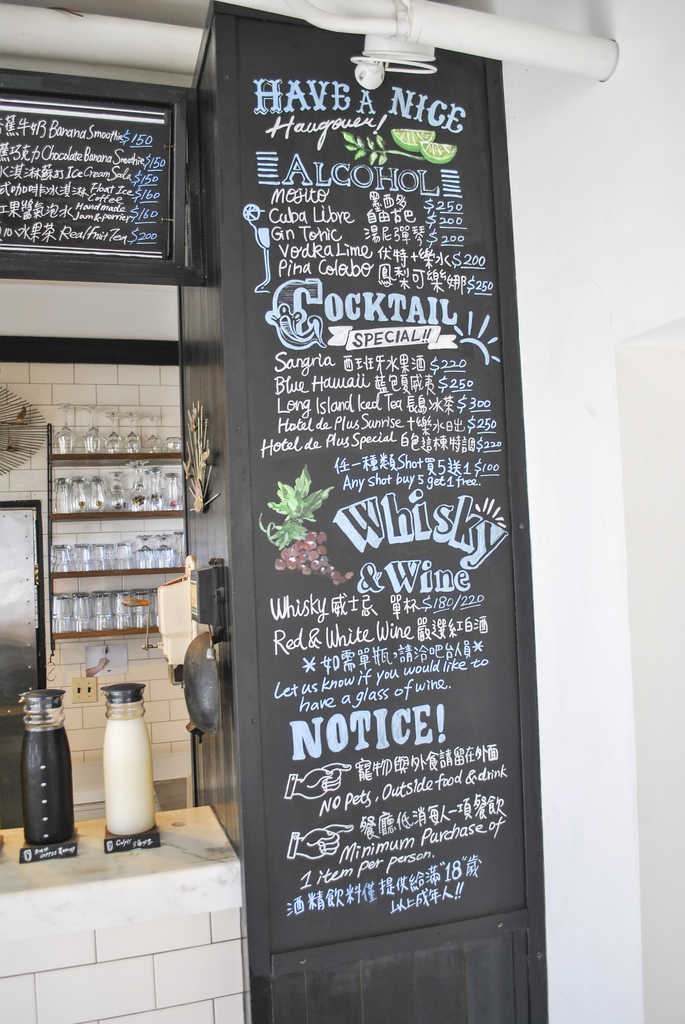 蕉牛奶 Banana Smoothie $150
蕉巧克力 Chocolate Banana Smoothie $150
冰淇淋蘇打 Ice Cream Soda $150
式咖啡冰淇淋 Float Ice Coffee $160
果醬氣泡水 Handmade Jam & perrier $160
心水果茶 Real Fruit Tea $200
HAVE A NICE
Haugover!
ALCOHOL
Mosito 墨西多 $250
Cuba Libre 自由古巴 $200
Gin Tonic 湯尼彈琴 $200
Vodka Lime 伏特+樂水 $200
Pina Colabo 鳳梨可樂娜 $250
COCKTAIL
SPECIAL!!
Sangria 西班牙水果酒 $220
Blue Hawaii 藍色夏威夷 $250
Long Island Iced Tea 長島冰茶 $300
Hotel de Plus Sunrise +樂水日出 $250
Hotel de Plus Special 白色這棟特調 $220
任一種類Shot買5送1 $100
Any shot buy 5 get 1 free.
Whisky
& Wine
Whisky 威士忌 單杯 $180/220
Red & White Wine 嚴選紅白酒
*如需單瓶,請洽吧台人員*
Let us know if you would like to
have a glass of wine.
NOTICE!
寵物與外食請留在外面
NO Pets, Outside food & drink
餐廳低消每人一項餐飲
Minimum Purchase of
1 item per person.
酒精飲料僅提供給滿"18"歲
以上成年人!!